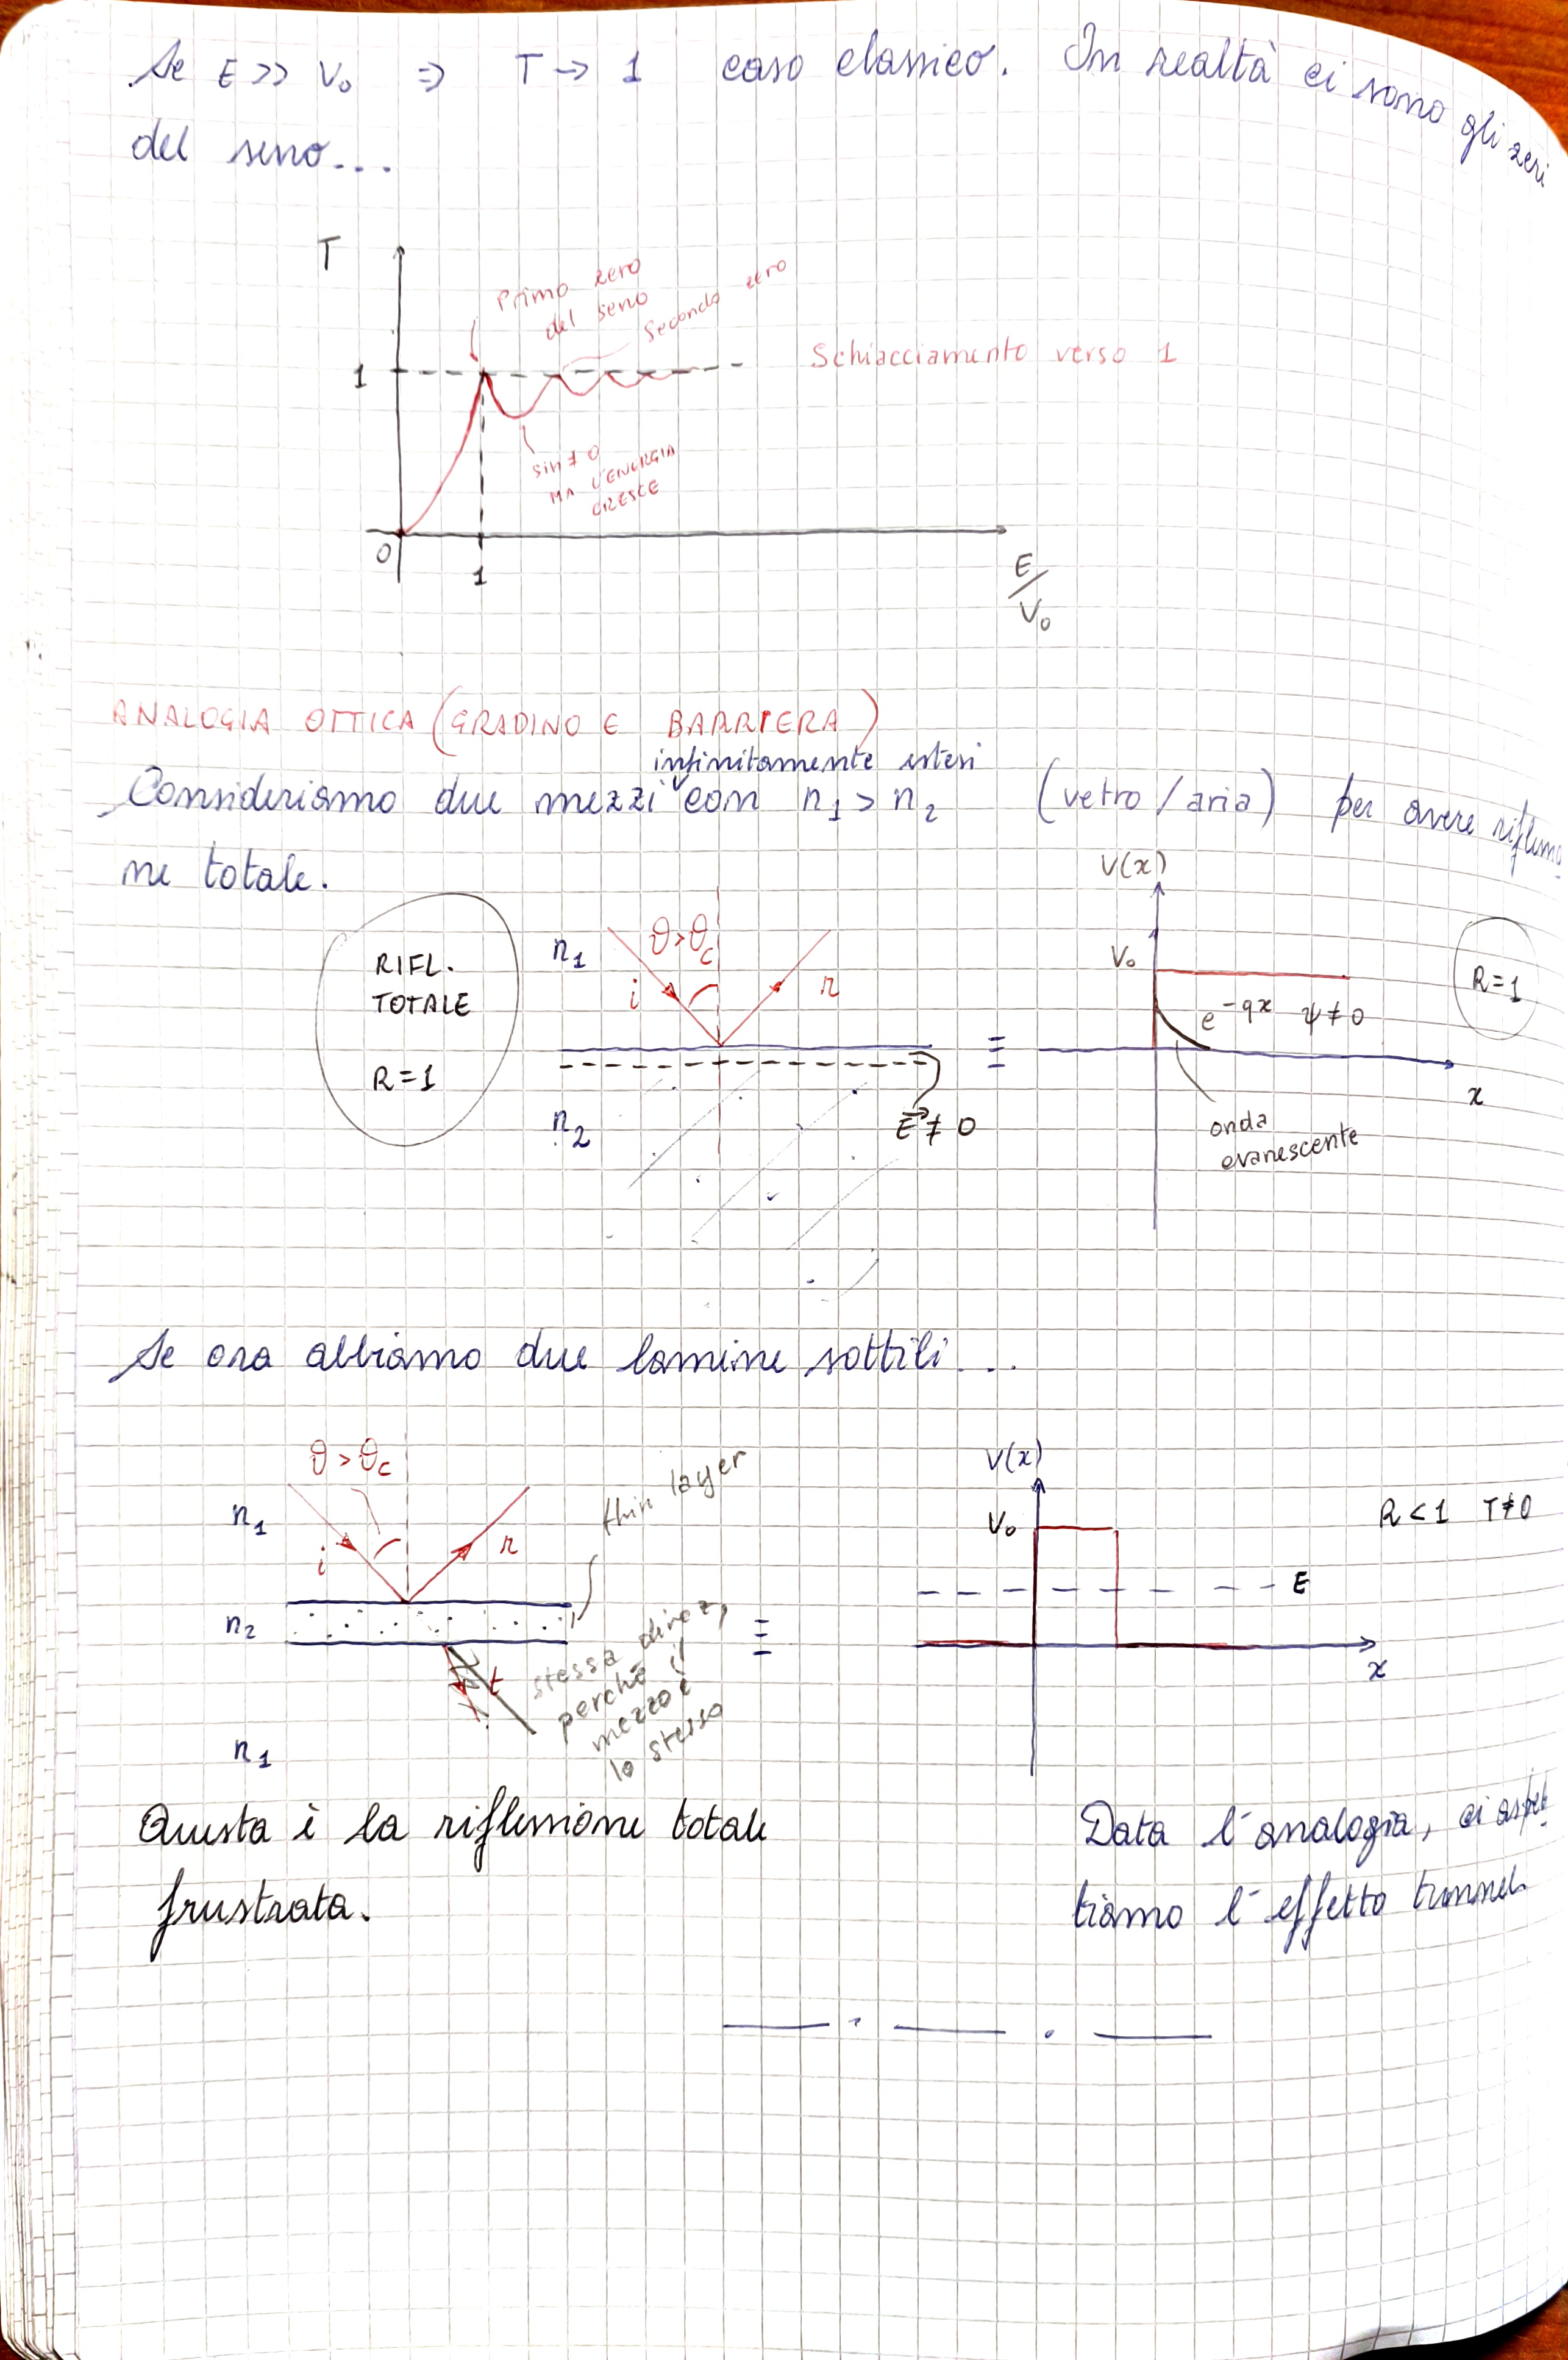 Se E >> V₀ ⇒ T → 1 caso classico. In realtà ci sono gli zeri
del seno...
T
Primo zero
del seno
Secondo zero
1
Schiacciamento verso 1
sin ≠ 0
MA L'ENERGIA
CRESCE
0
1
E/V₀
ANALOGIA OTTICA (GRADINO E BARRIERA)
infinitamente estesi
Consideriamo due mezzi con n₁ > n₂ (vetro / aria) per avere riflessio
ne totale.
V(x)
RIFL.
TOTALE
R = 1
n₁
θ > θc
i
r
V₀
R = 1
e^-qx ψ ≠ 0
≡
x
n₂
E⃗ ≠ 0
onda
evanescente
Se ora abbiamo due lamine sottili...
θ > θc
n₁
i
r
thin layer
V(x)
V₀
R < 1 T ≠ 0
E
n₂
≡
x
t
stessa direz,
perché il
mezzo è
lo stesso
n₁
Questa è la riflessione totale
frustrata.
Data l'analogia, ci aspet
tiamo l'effetto tunnel.